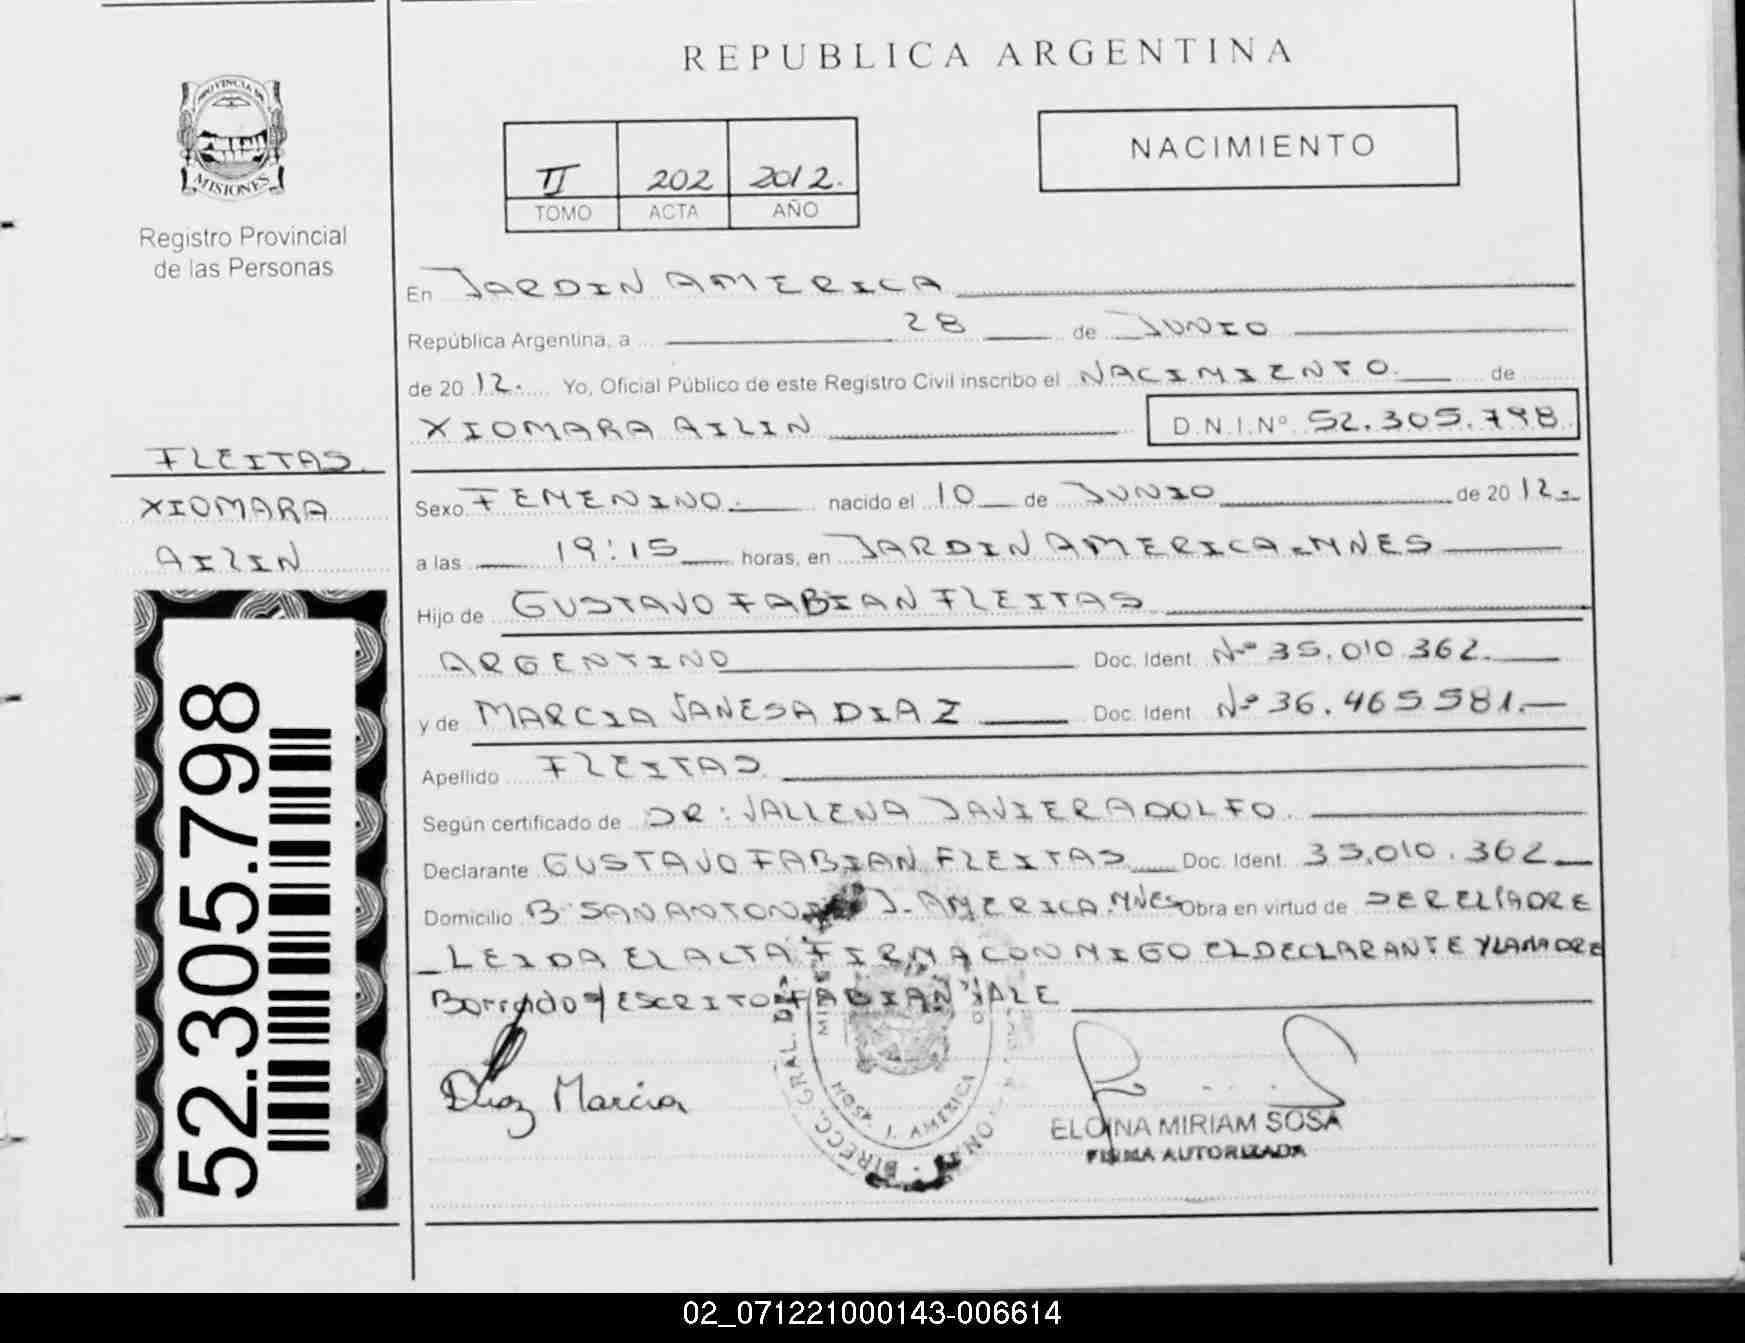 REPUBLICA ARGENTINA
PROVINCIA DE
MISIONES
Registro Provincial
de las Personas
NACIMIENTO
II 202 2012.
TOMO ACTA AÑO
En JARDIN AMERICA
República Argentina, a 28 de JUNIO
de 20 12. Yo, Oficial Público de este Registro Civil inscribo el NACIMIENTO. de
XIOMARA AILIN D.N.I.Nº 52.305.798
FLEITAS.
XIOMARA
AILIN
52.305.798
Sexo FEMENINO. nacido el 10 de JUNIO de 20 12.-
a las 19:15 horas, en JARDIN AMERICA-MNES
Hijo de GUSTAVO FABIAN FLEITAS
ARGENTINO Doc. Ident. Nº 35.010.362.
y de MARCIA VANESA DIAZ Doc. Ident. Nº 36.465.581.-
Apellido FLEITAS
Según certificado de DR: VALLENA JAVIER ADOLFO.
Declarante GUSTAVO FABIAN FLEITAS Doc. Ident. 35.010.362
Domicilio Bº SAN ANTONIO J. AMERICA.MNES Obra en virtud de SER EL PADRE
LEIDA EL ACTA FIRMA CON MIGO EL DECLARANTE Y LA MADRE
Borrado y ESCRITO FABIAN VALE
Diaz Marcia
HOSP. J. AMERICA
ELOINA MIRIAM SOSA
FIRMA AUTORIZADA
02_071221000143-006614